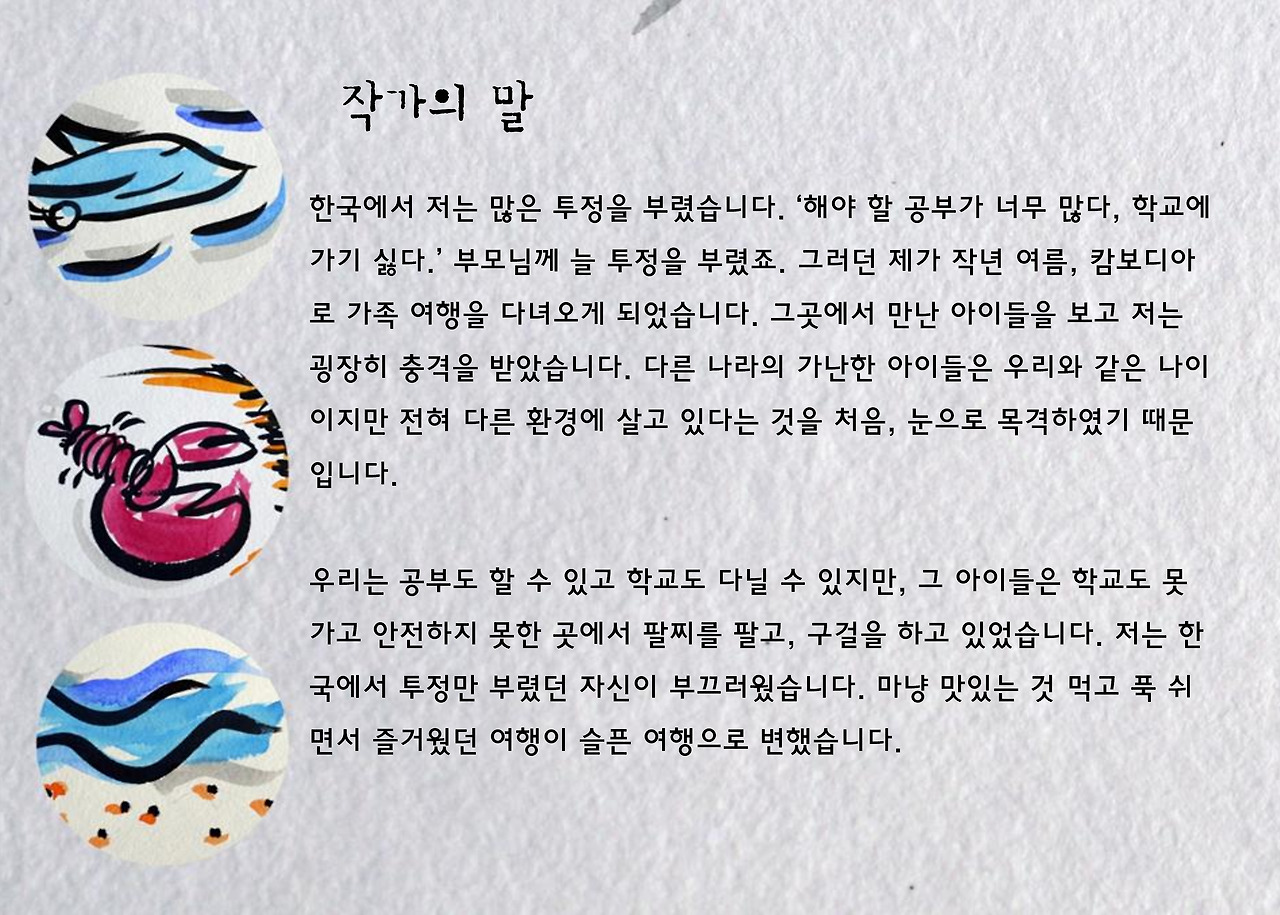 작가의 말
한국에서 저는 많은 투정을 부렸습니다. ‘해야 할 공부가 너무 많다, 학교에
가기 싫다.’ 부모님께 늘 투정을 부렸죠. 그러던 제가 작년 여름, 캄보디아
로 가족 여행을 다녀오게 되었습니다. 그곳에서 만난 아이들을 보고 저는
굉장히 충격을 받았습니다. 다른 나라의 가난한 아이들은 우리와 같은 나이
이지만 전혀 다른 환경에 살고 있다는 것을 처음, 눈으로 목격하였기 때문
입니다.
우리는 공부도 할 수 있고 학교도 다닐 수 있지만, 그 아이들은 학교도 못
가고 안전하지 못한 곳에서 팔찌를 팔고, 구걸을 하고 있었습니다. 저는 한
국에서 투정만 부렸던 자신이 부끄러웠습니다. 마냥 맛있는 것 먹고 푹 쉬
면서 즐거웠던 여행이 슬픈 여행으로 변했습니다.